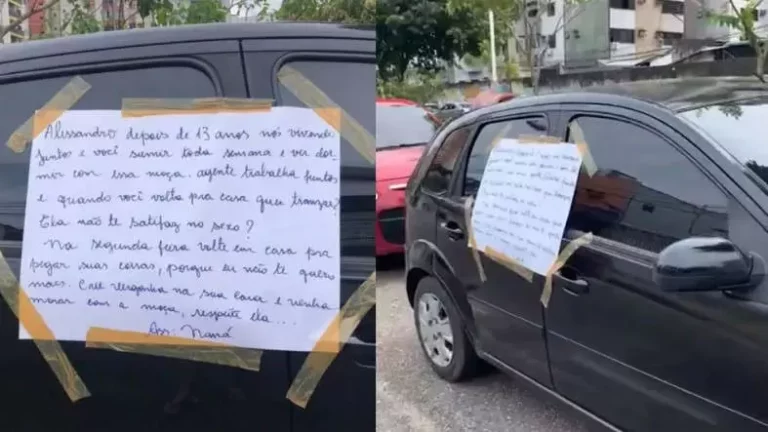 Alessandro depois de 13 anos nós vivendo
juntos e você sumir toda semana e ver dor
mir com essa moça. agente trabalha juntos
e quando você volta pra casa quer transar?
Ela não te satifaz no sexo?
Na segunda feira volte em casa pra
pegar suas coisas, porque eu não te quero
mais. Crie vergonha na sua cara e venha
morar com a moça, respeite ela...
Ass: Naná